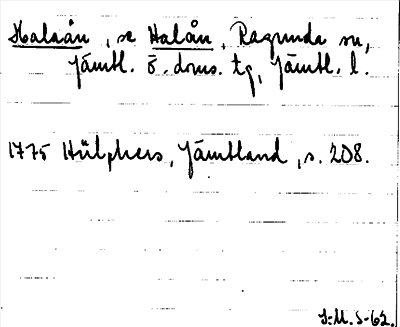 Halaån, se Halån, Ragunda sn,
Jämtl. ö. doms. tg, Jämtl. l.
1775 Hülphers, Jämtland, s. 208.
I-M. S-62.